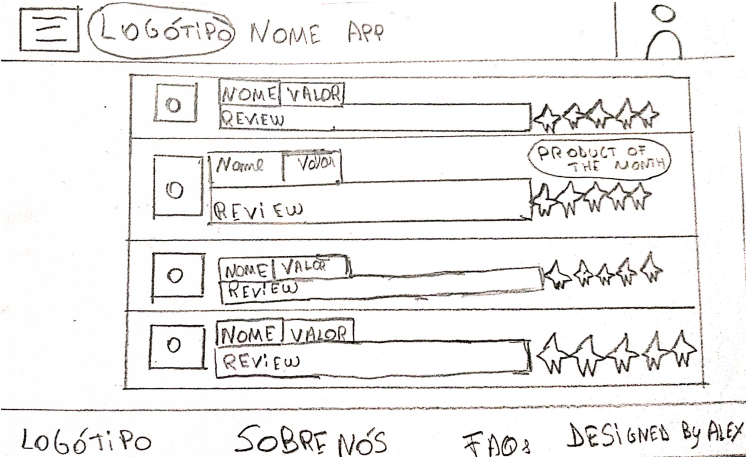 LOGÓTIPO NOME APP
NOME VALOR
REVIEW
PRODUCT OF
THE MONTH
Name Valor
REVIEW
NOME VALOR
REVIEW
NOME VALOR
REVIEW
LOGÓTIPO SOBRE NÓS FAQs DESIGNED By ALEX